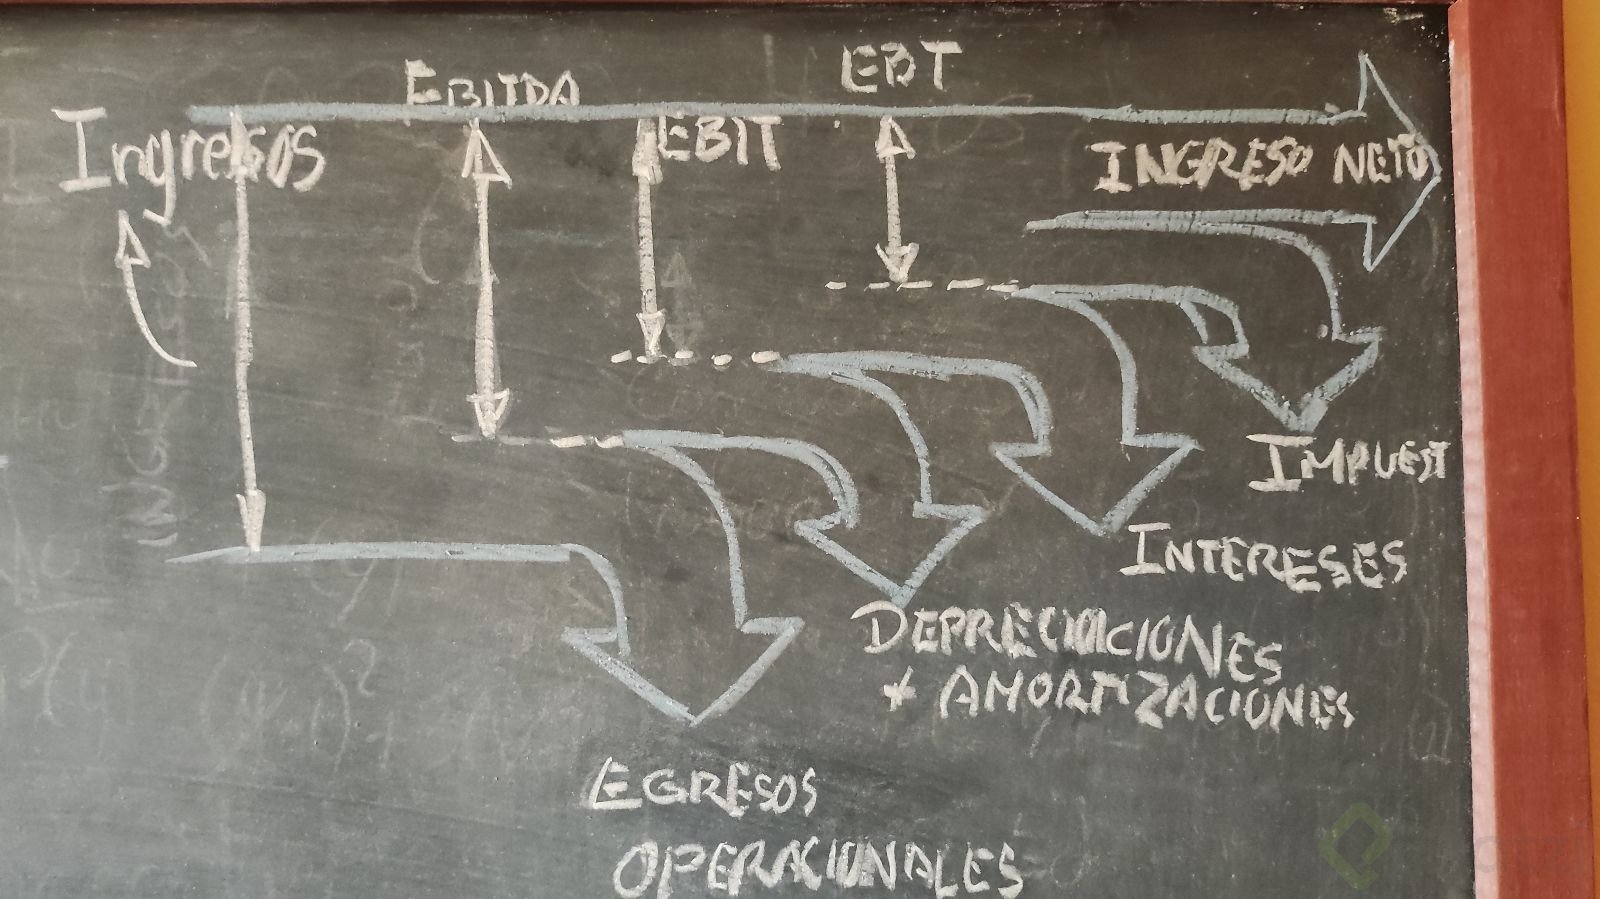 EBITDA
EBT
Ingresos
EBIT
INGRESO NETO
IMPUEST
INTERESES
DEPRECIACIONES
+ AMORTIZACIONES
EGRESOS
OPERACIONALES